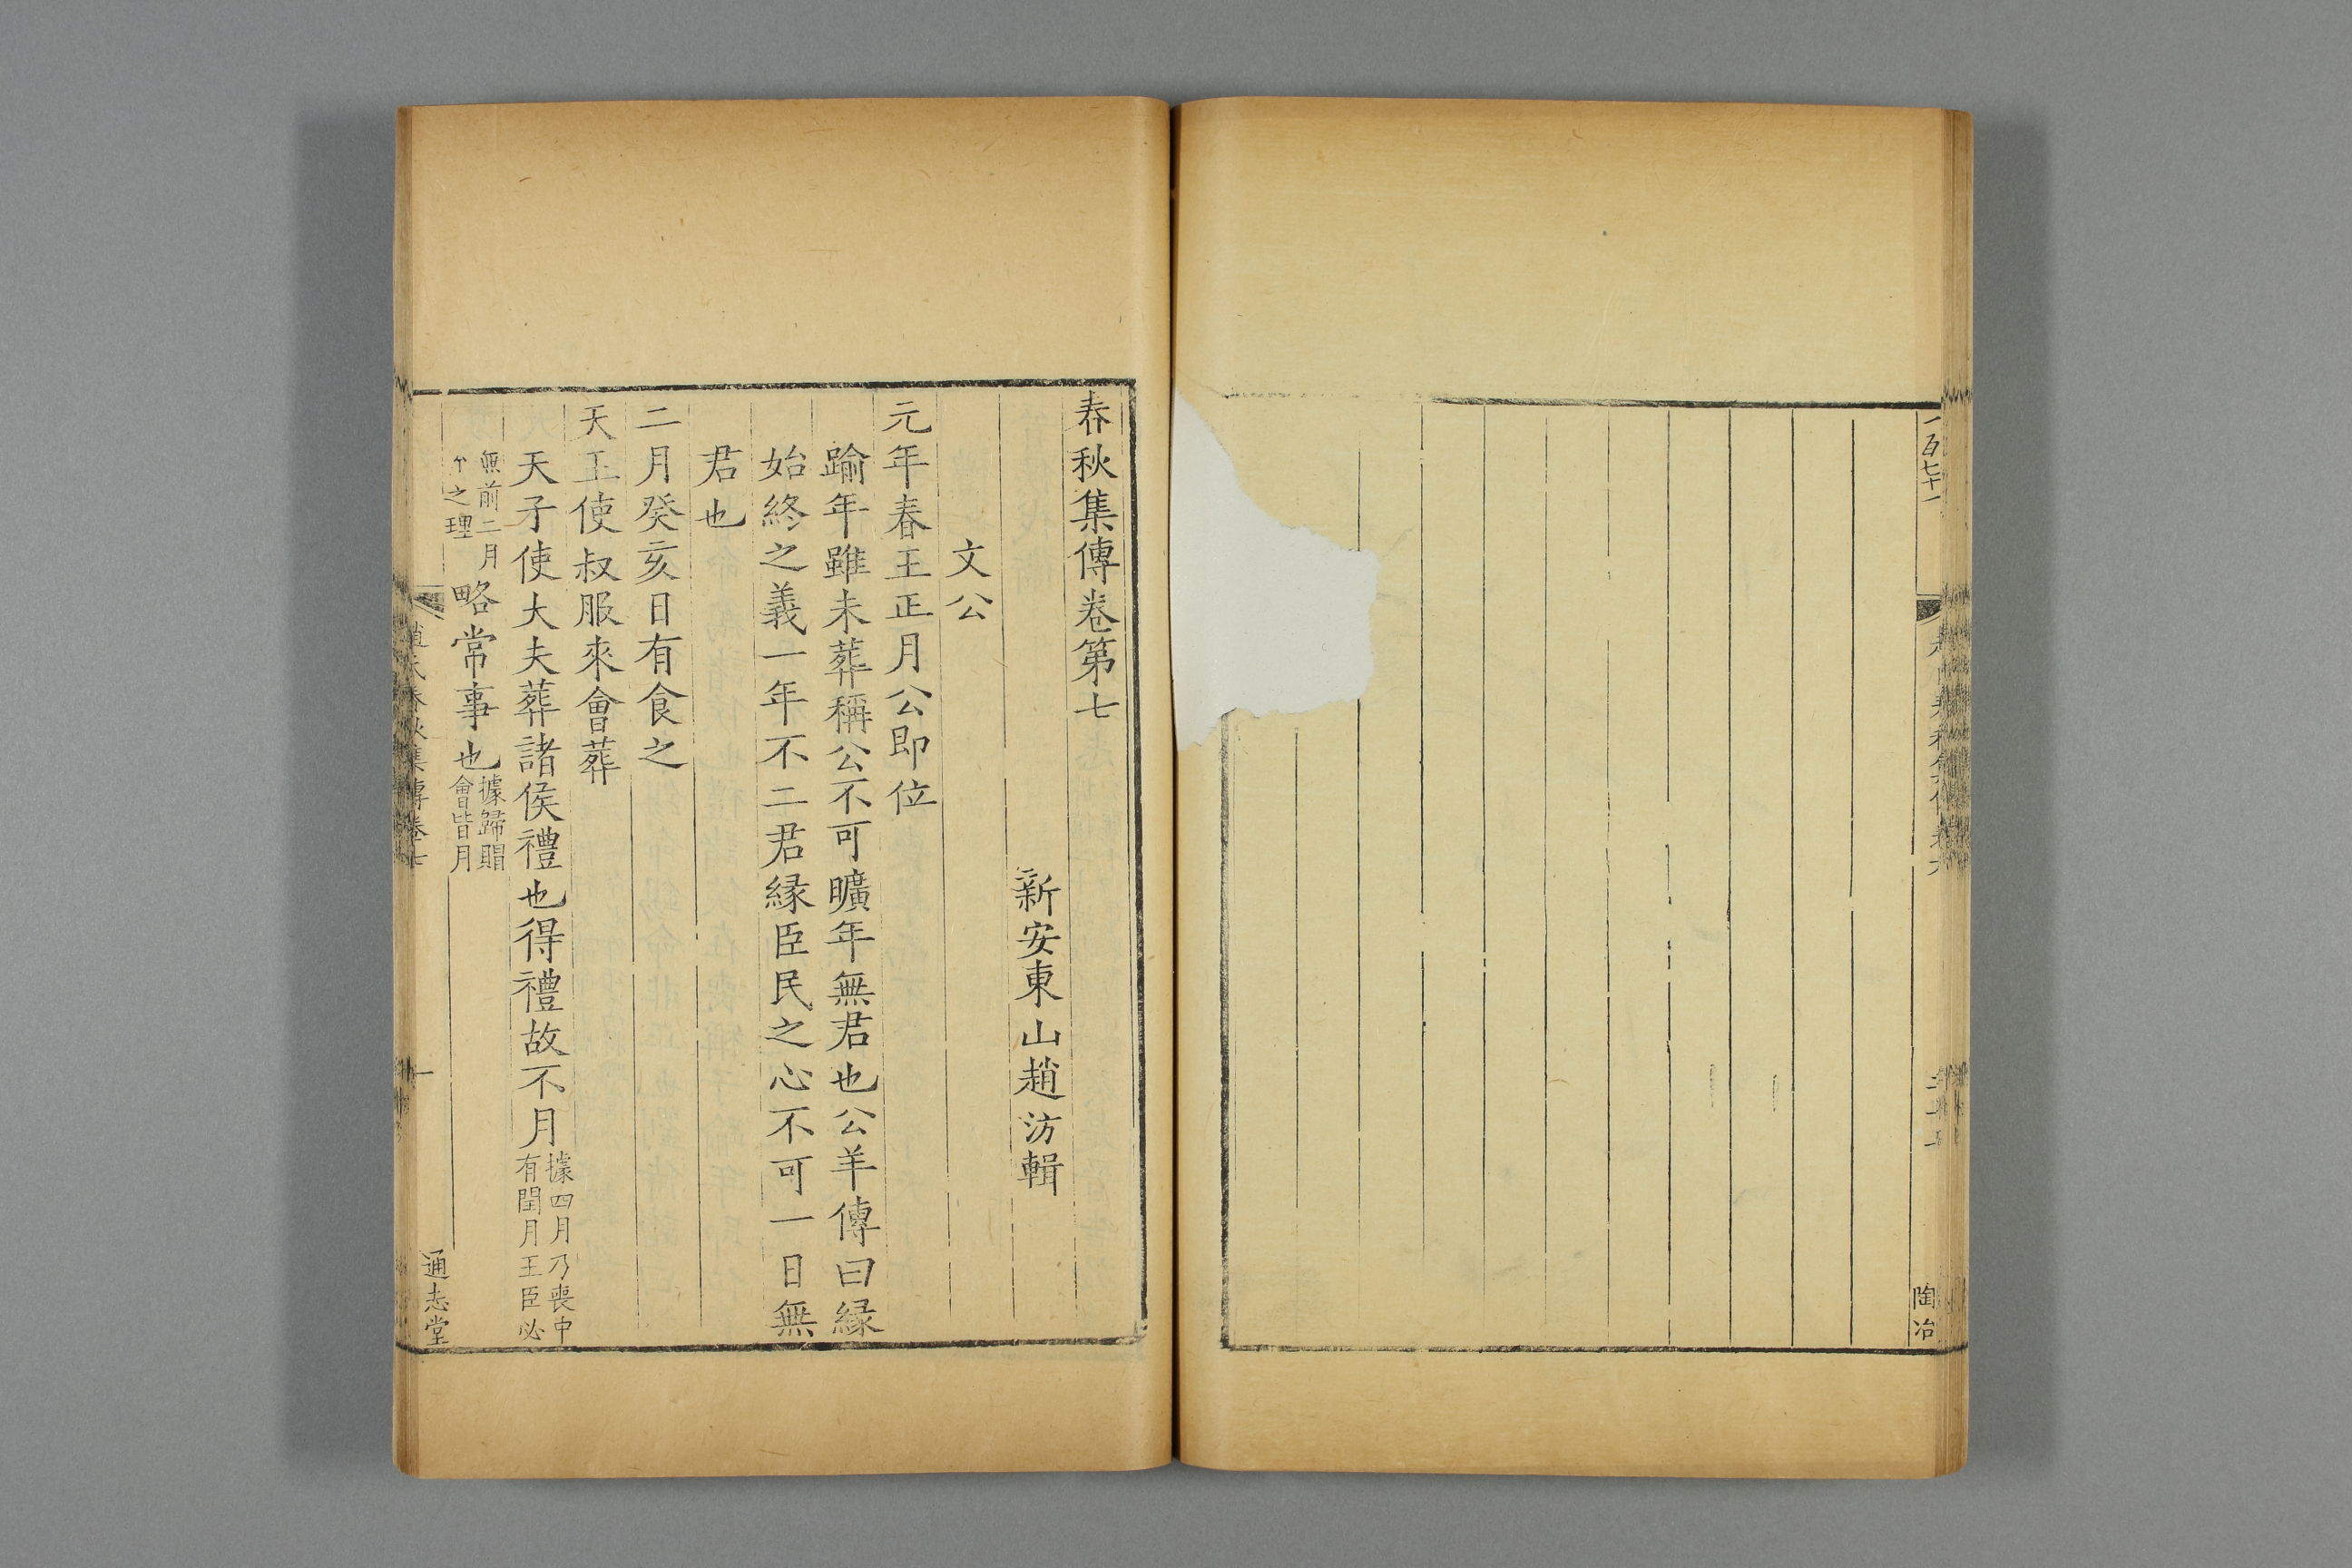 一百七十一
陶冶
春秋集傳卷第七
新安東山趙汸輯
文公
元年春王正月公即位
踰年雖未葬稱公不可曠年無君也公羊傳曰緣
始終之義一年不二君緣臣民之心不可一日無
君也
二月癸亥日有食之
天王使叔服來會葬
天子使大夫葬諸侯禮也得禮故不月據四月乃喪中
有閏月王臣必
無前二月
之理略常事也據歸賵
會皆月
趙氏春秋集傳卷七
一
通志堂